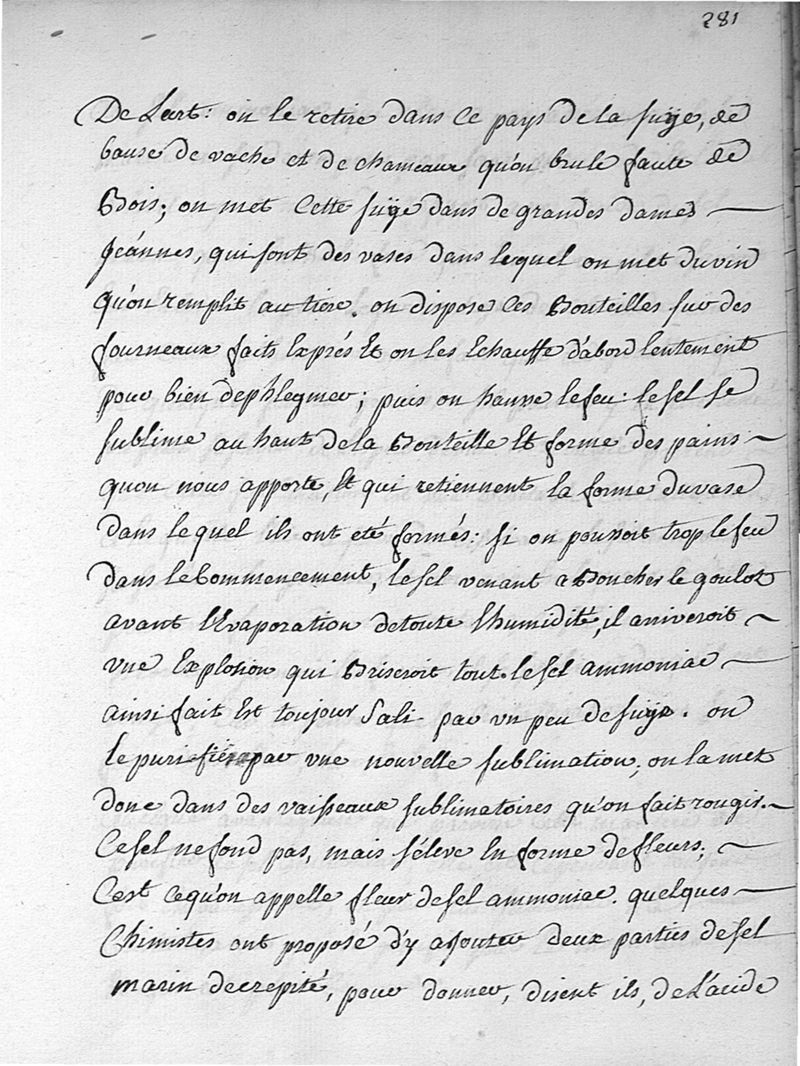 281
De Lart: on le retire dans Ce pays de la suÿe, de
bouse de vache et de chameaux qu'on brule faute de
Bois; on met Cette suÿe dans de grandes dames
jeánnes, qui sont des vases dans lequel on met du vin
qu'on remplit au tiers. on dispose Ces Bouteilles sur des
fourneaux faits Exprés Et on les Echauffe d'abord lentement
pour bien dephlegmer; puis on hausse le feu: le sel se
sublime au haut de la Bouteille Et forme des pains
quon nous apporte, Et qui retiennent la forme du vase
dans lequel ils ont eté formés: si on poussoit trop le feu
dans le Commencement, le sel venant a Boucher le goulot
avant l'Evaporation de toute l'humidité, il arriveroit
vne Explosion qui Briseroit tout. le sel ammoniac
ainsi fait Est toujour Sali par vn peu de suÿe. on
le purifie par vne nouvelle sublimation; on la met
donc dans des vaisseaux sublimatoires qu'on fait rougir.
Ce sel ne fond pas, mais s'éleve En forme de fleurs;
C'est ce qu'on appelle fleur de sel ammoniac. quelques
Chimistes ont proposé d'y ajouter deux parties de sel
marin decrepité, pour donner, disent ils, de L'acide